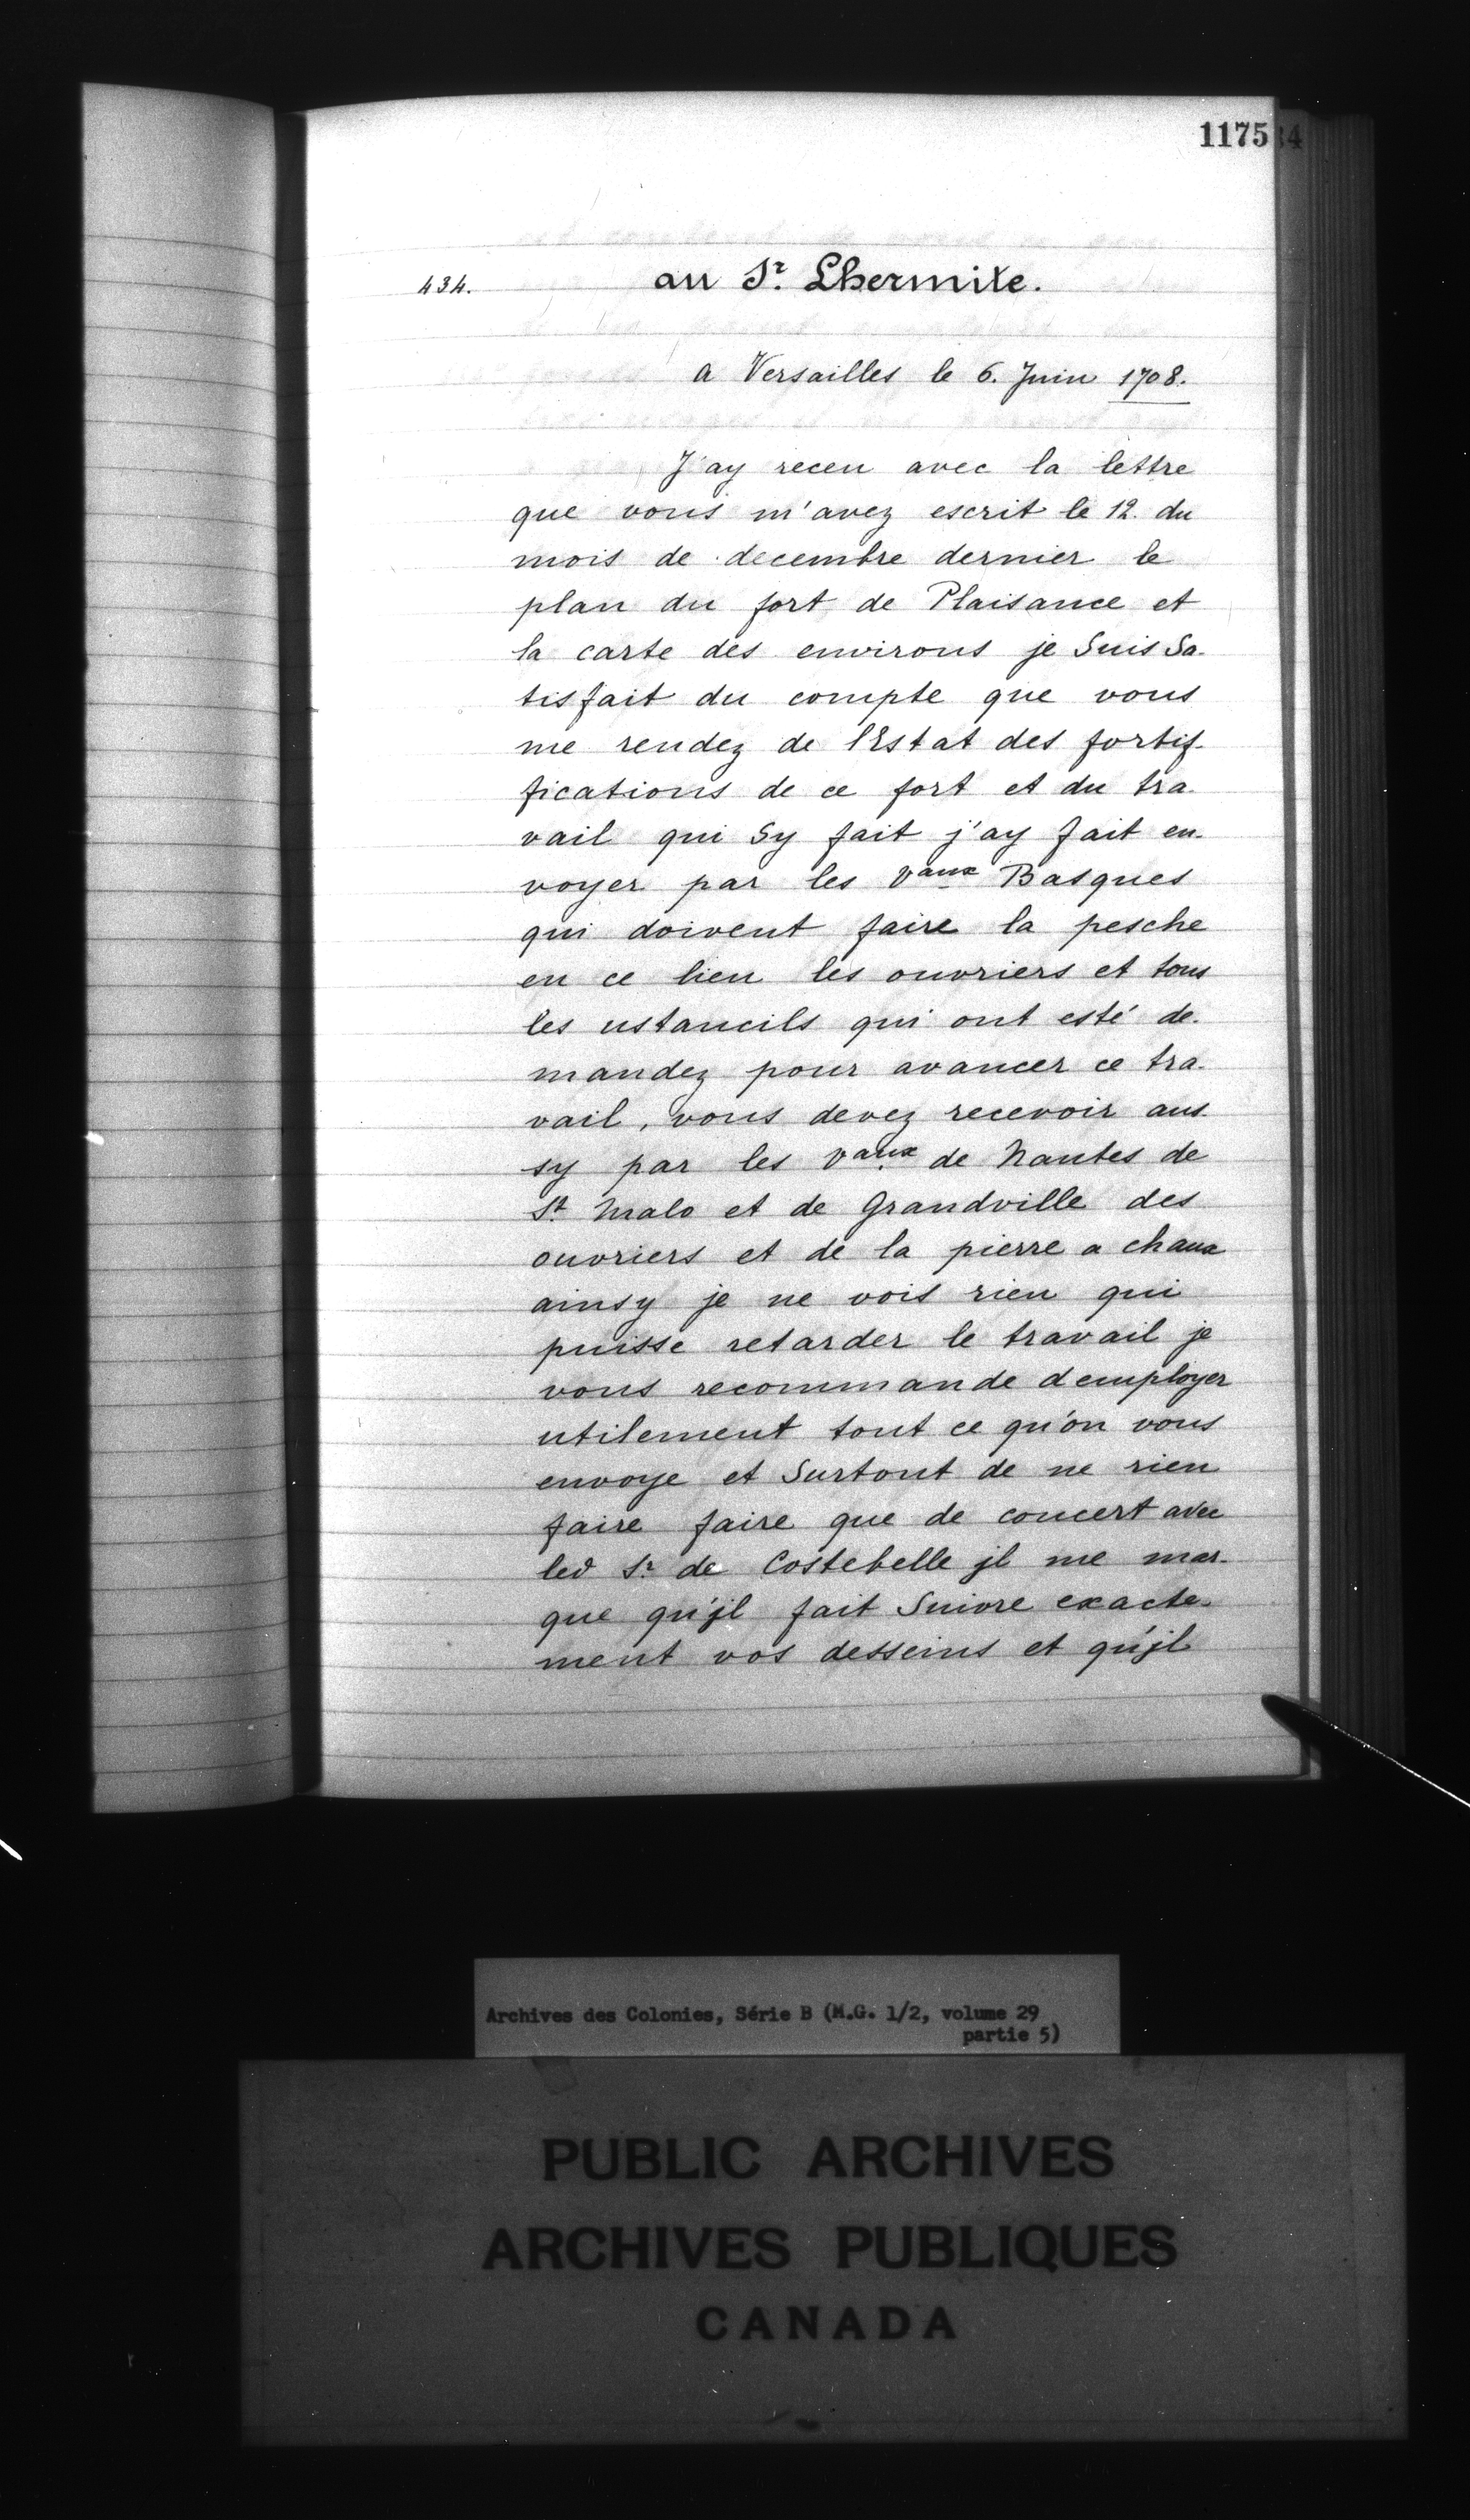 1175
434.
au Sr. Lhermite.
a Versailles le 6. Juin 1708.
J'ay receu avec la lettre
que vous m'avez escrit le 12. du
mois de decembre dernier le
plan du fort de Plaisance et
la carte des environs je Suis Sa-
tisfait du compte que vous
me rendez de lEstat des fortif-
fications de ce fort et du tra-
vail qui Sy fait j'ay fait en-
voyer par les vaux Basques
qui doivent faire la pesche
en ce lieu les ouvriers et tous
les ustancils qui ont esté de-
mandez pour avancer ce tra-
vail, vous devez recevoir aus-
sy par les vaux de Nantes de
St. Malo et de Grandville des
ouvriers et de la pierre a chaux
ainsy je ne vois rien qui
puisse retarder le travail je
vous recommande demployer
utilement tout ce qu'on vous
envoye et Surtout de ne rien
faire faire que de concert avec
led Sr. de Costebelle jl me mar-
que qu'jl fait Suivre exacte-
ment vos desseins et qu'jl
Archives des Colonies, Série B (M.G. 1/2, volume 29
partie 5)
PUBLIC ARCHIVES
ARCHIVES PUBLIQUES
CANADA